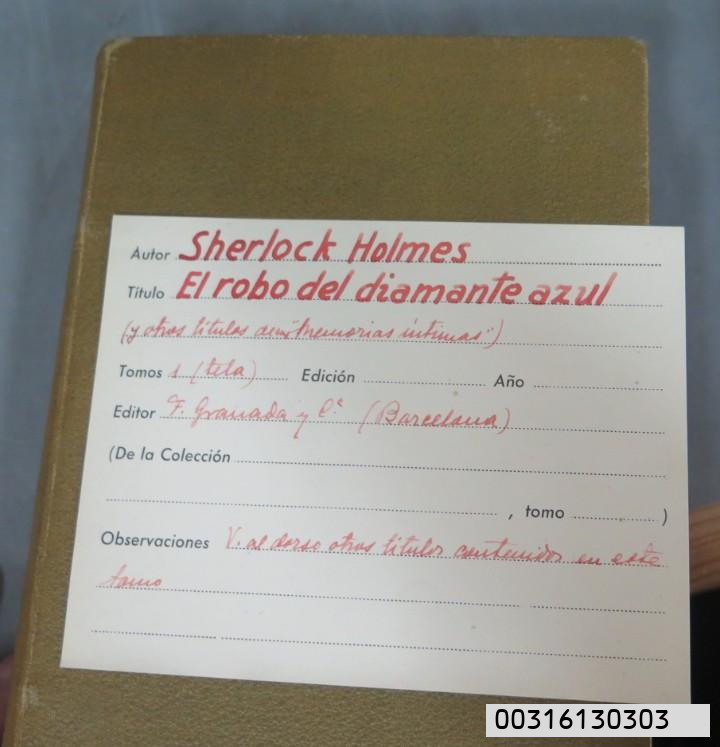 Autor Sherlock Holmes
Título El robo del diamante azul
(y otros títulos de sus "Memorias íntimas")
Tomos 1 (tela) Edición Año
Editor F. Granada y Cª (Barcelona)
(De la Colección
, tomo )
Observaciones V. al dorso otros títulos contenidos en este
tomo
00316130303